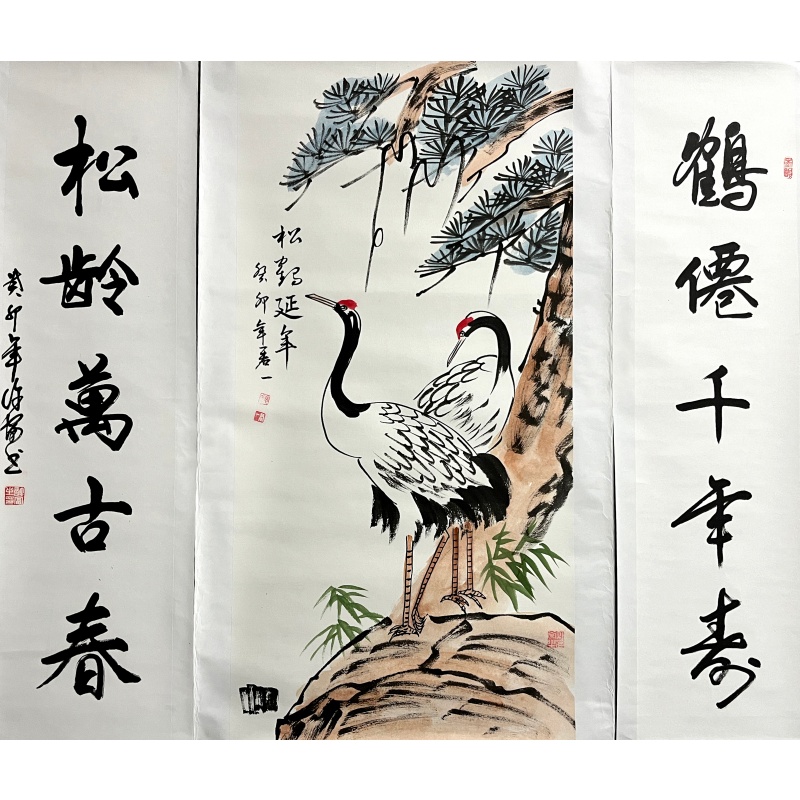 鶴僊千年寿
松鶴延年
癸卯年君一
松齡萬古春
癸卯年